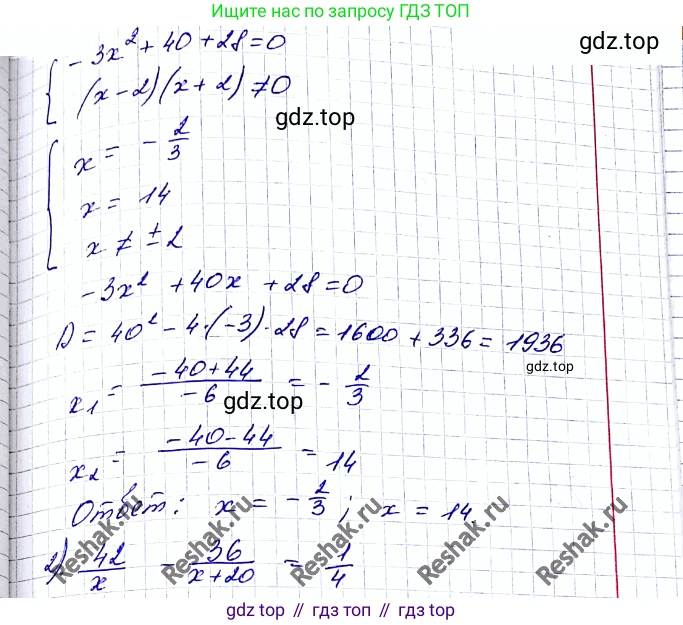 Ищите нас по запросу ГДЗ ТОП
gdz.top
{ -3x² + 40 + 28 = 0
(x-2)(x+2) ≠ 0
gdz.top
{ x = -2/3
x = 14
x ≠ ±2
-3x² + 40x + 28 = 0
D = 40² - 4·(-3)·28 = 1600 + 336 = 1936
gdz.top
x₁ = (-40+44)/(-6) = -2/3
gdz.top
x₂ = (-40-44)/(-6) = 14
Ответ: x = -2/3; x = 14.
2) 42/x - 36/(x+20) = 1/4
Reshak.ru Reshak.ru Reshak.ru Reshak.ru
gdz top // гдз топ // gdz top